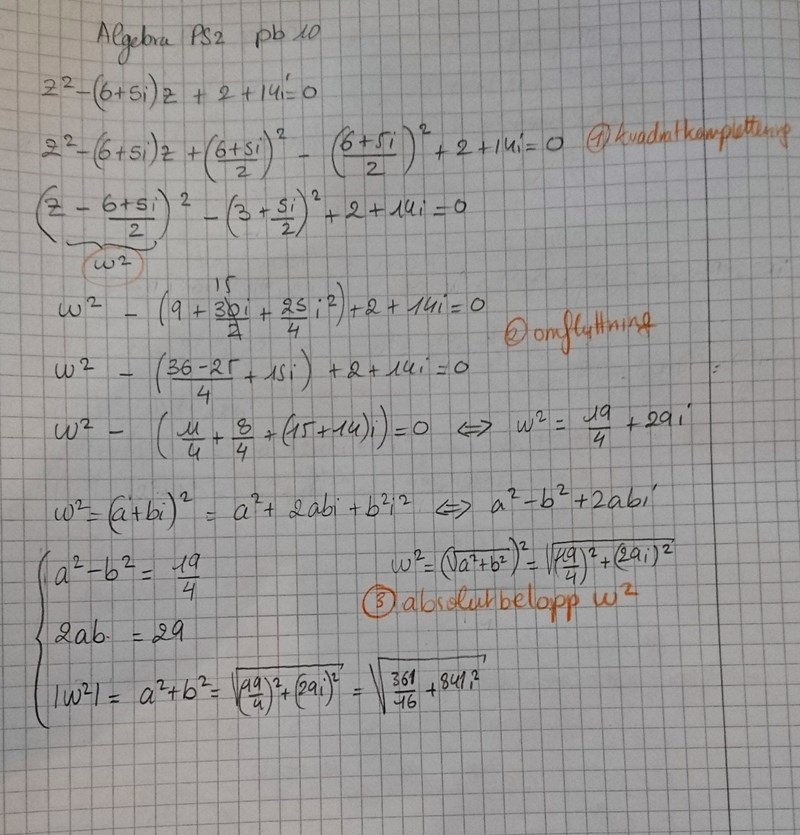 Algebra PS2 pb 10
z² - (6+5i)z + 2 + 14i = 0
z² - (6+5i)z + ((6+5i)/2)² - ((6+5i)/2)² + 2 + 14i = 0 ① kvadratkomplettering
(z - (6+5i)/2)² - (3 + 5i/2)² + 2 + 14i = 0
w²
15
w² - (9 + 30i/2 + 25/4 i²) + 2 + 14i = 0
② omflyttning
w² - ((36-25)/4 + 15i) + 2 + 14i = 0
w² - (11/4 + 8/4 + (15+14)i) = 0 ⇔ w² = 19/4 + 29i
w² = (a+bi)² = a² + 2abi + b²i² ⇔ a² - b² + 2abi
a² - b² = 19/4 w² = (√(a²+b²))² = √((19/4)² + (29i)²)
③ absolutbelopp w²
2ab = 29
|w²| = a² + b² = √((19/4)² + (29i)²) = √(361/16 + 841i²)